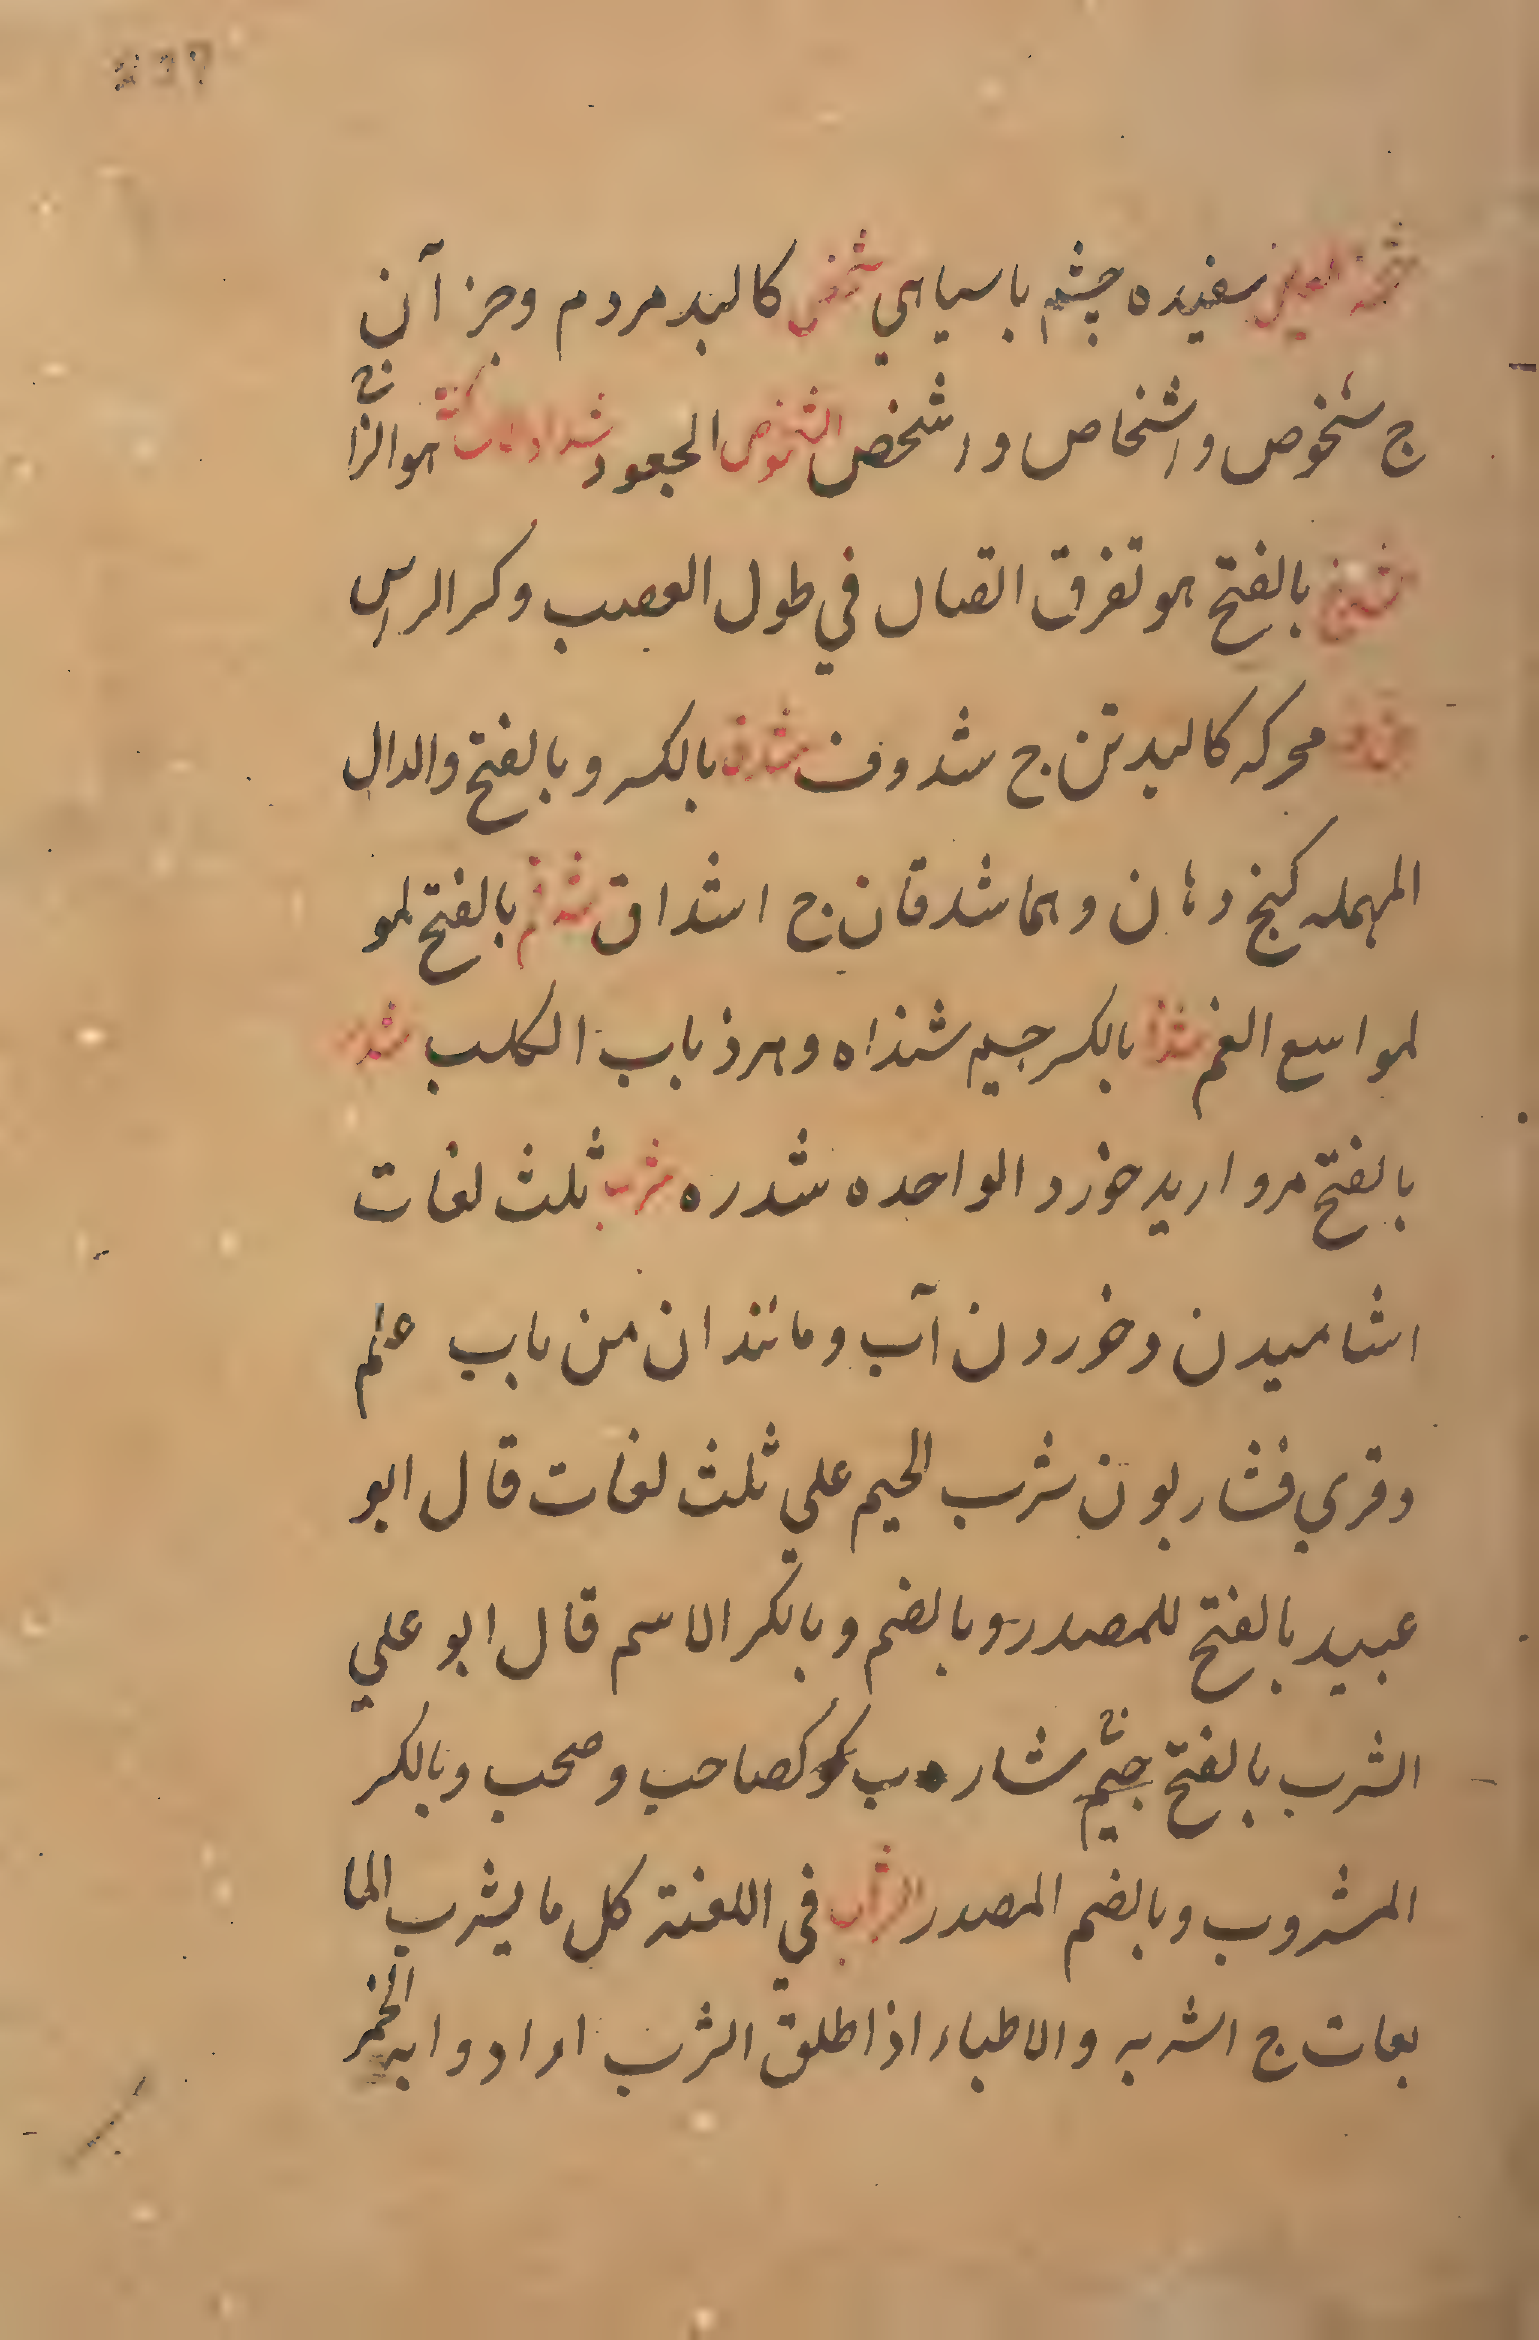 شحمة العين سفیده چشم با سیاهي شخص کالبد مردم وجز آن
ج شخوص واشخاص واشخص الشخوص الجعود شداد ککتاب هو الزاج
شدخ بالفتح هو تفرق اتصال في طول العصب وکسر الراس
شدف محرکه کالبد تن ج شدوف شدق بالکسر وبالفتح والدال
المهمله کنج دهان وهما شدقان ج اشداق شدقم بالفتح لمو
لمواسع الفم شذا بالکسر جیم شذاه وهر ذباب الکلب شذر
بالفتح مروارید خورد الواحده شدره شرب ثلث لغات
اشامیدن وخوردن آب ومانندان من باب علم
وقري فشاربون شرب الحیم علي ثلث لغات قال ابو
عبید بالفتح للمصدر وبالضم وبالکسر الاسم قال ابو علي
الشرب بالفتح جیم شارب کصاحب وصحب وبالکسر
المشروب وبالضم المصدر الشراب في اللغة کل ما یشرب الما
یعات ج اشربه والاطباء اذا طلق الشرب ارادوا به الخمر